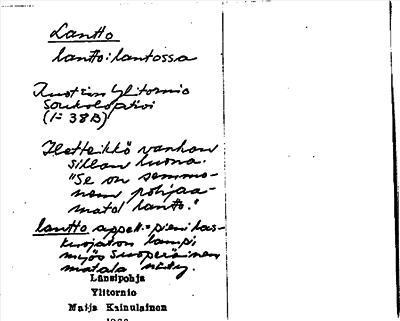 Lantto
lantto : lantossa
Ruotsin Ylitornio
Soukolojärvi
(1= 38B)
Hetteikkö vanhan
sillan luona.
"Se on semmo-
nem pohjaa-
matol lantto."
lantto appell. = pieni las-
kuojaton lampi,
myös suoperäinen
matala
Länsipohja
Ylitornio
Maija Kainulainen